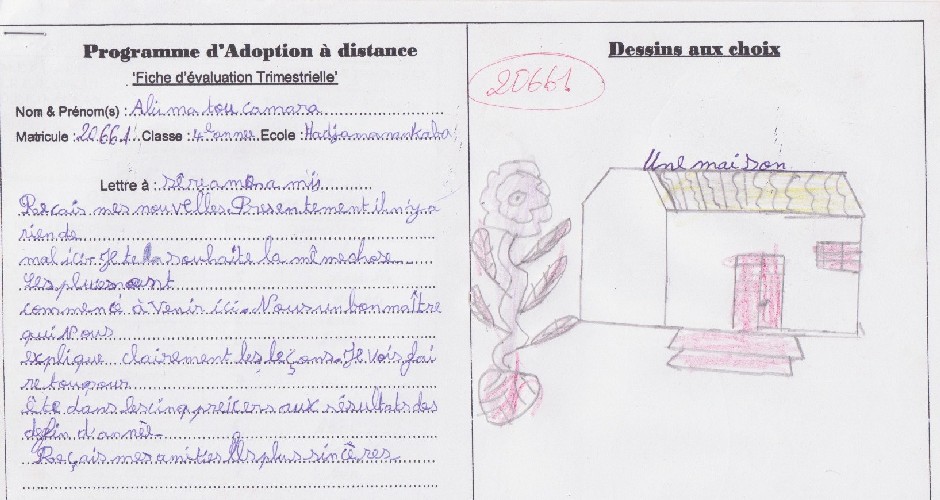 Programme d'Adoption à distance
'Fiche d'évaluation Trimestrielle'
Nom & Prénom(s) : Alimatou Camara
Matricule : 20661 Classe : 4e année Ecole : Hadjamanankaba
Lettre à :
Reçais mes nouvelles Presentement il n'y a
rien de
mal ici. Je te la souhaite la même chose
Les pluies ont
commencé à venir ici. Nous un bon maître
qui Nous
explique clairement les leçons. Je vois fai
re toujour
être dans les cinq preiers aux résultats des
de fin d'année.
Reçais mes amities les plus sincères
Dessins aux choix
20661
Une maison